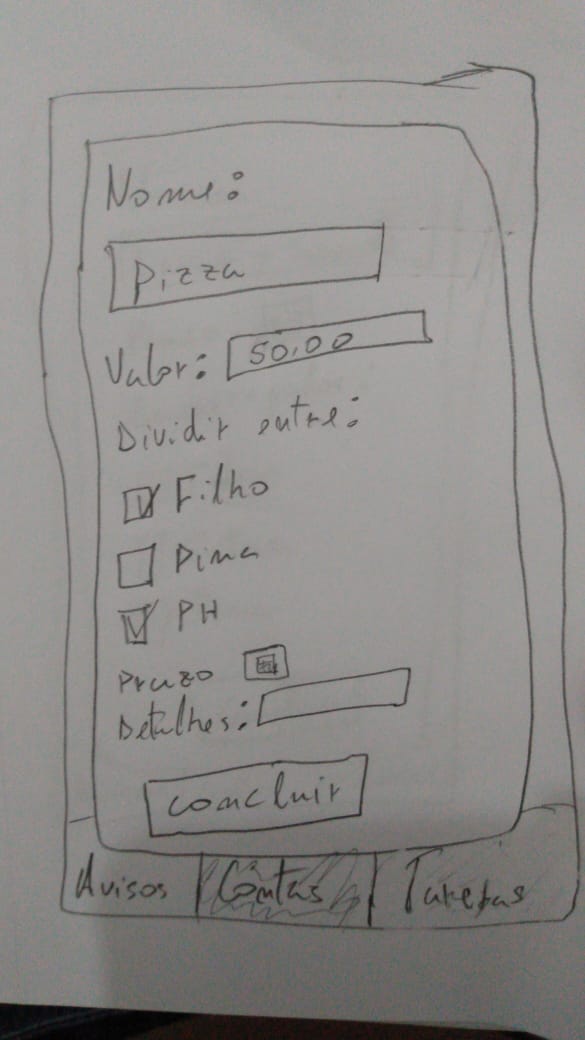 Nome:
Pizza
Valor: 50,00
Dividir entre:
Filho
Pima
PH
Prazo
Detalhes:
Concluir
Avisos Contas Tarefas